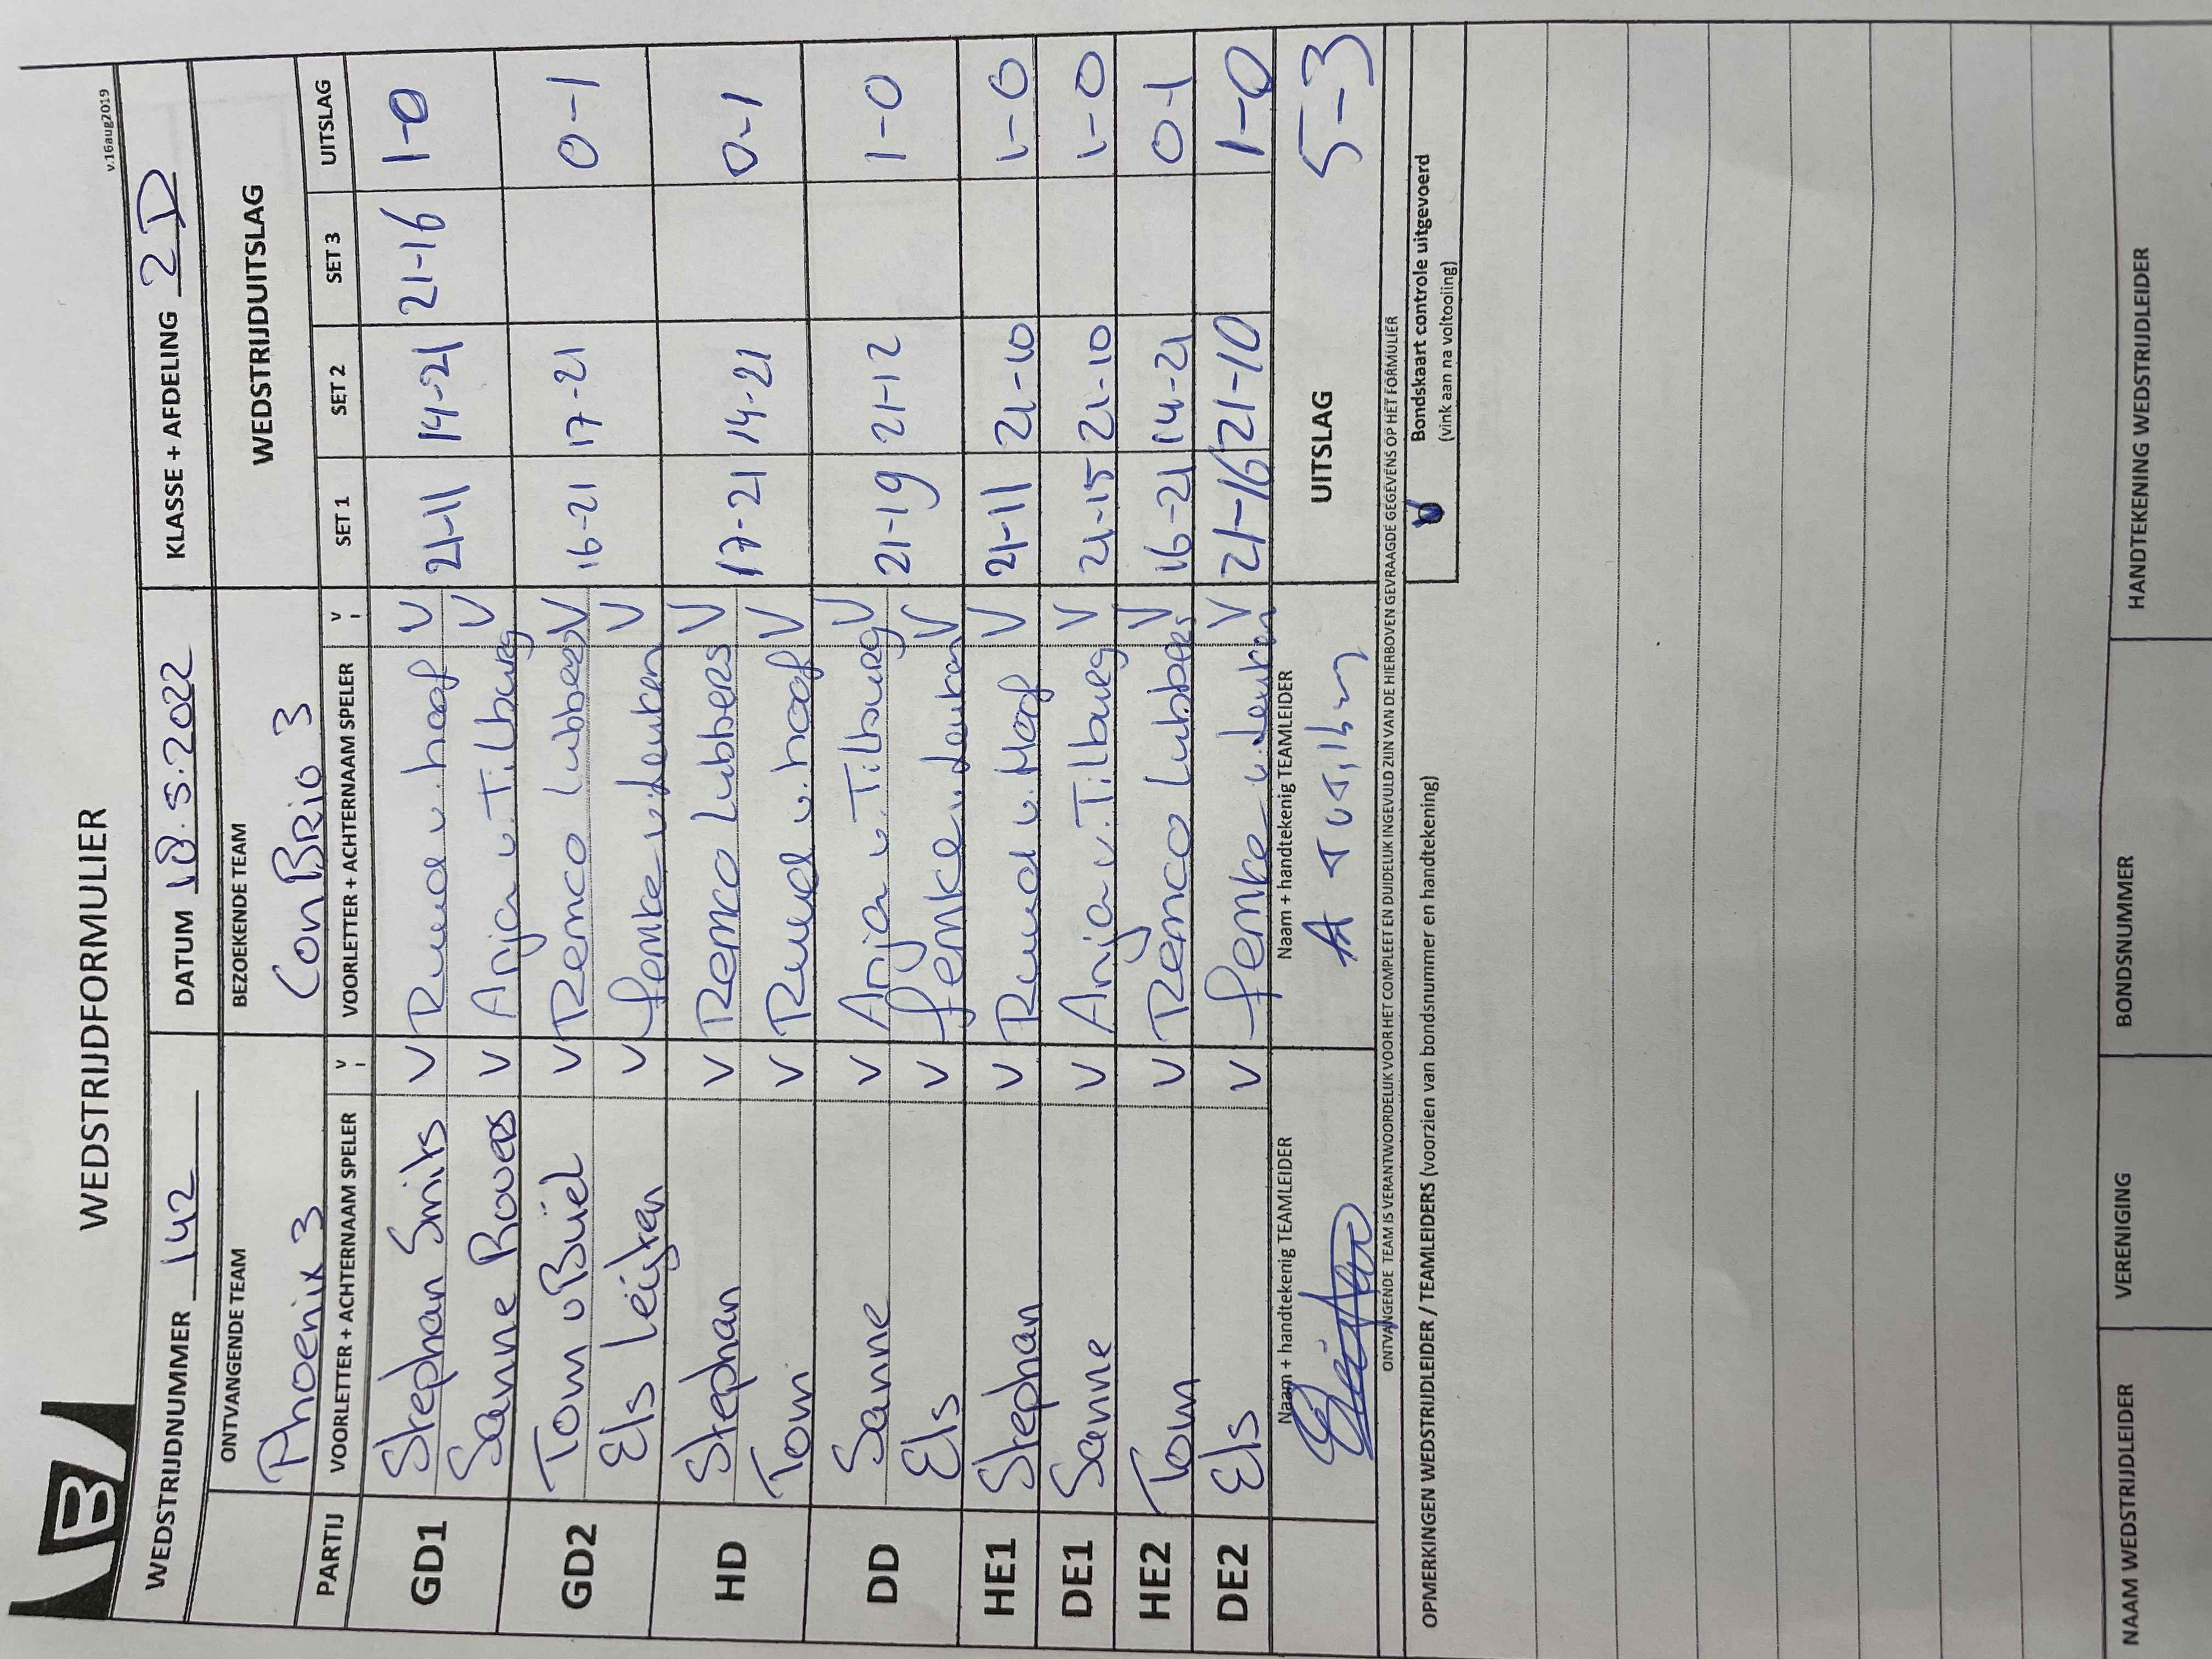 WEDSTRIJDFORMULIER
v.16aug2019
B
WEDSTRIJDNUMMER 142 DATUM 18.3.2022 KLASSE + AFDELING 2D
ONTVANGENDE TEAM BEZOEKENDE TEAM WEDSTRIJDUITSLAG
Phoenix 3 Con BRio 3
PARTIJ VOORLETTER + ACHTERNAAM SPELER V VOORLETTER + ACHTERNAAM SPELER V SET 1 SET 2 SET 3 UITSLAG
GD1 Stephan Smits V Ruud v. hoof V 21-11 14-21 21-16 1-0
Sanne Rovers V Anja v. Tilburg V
GD2 Tom v Büel V Remco Lubbers V 16-21 17-21 0-1
Els Leijten V femke v. Leuken V
HD Stephan V Remco Lubbers V 17-21 14-21 0-1
Tom V Ruud v. hoof V
DD Sanne V Anja v. Tilburg V 21-19 21-12 1-0
Els V femke v. Leuken V
HE1 Stephan V Ruud v. Hoof V 21-11 21-10 1-0
DE1 Sanne V Anja v. Tilburg V 21-15 21-10 1-0
HE2 Tom V Remco Lubbers V 16-21 14-21 0-1
DE2 Els V femke v. Leuken V 21-16 21-10 1-0
Naam + handtekenig TEAMLEIDER Naam + handtekenig TEAMLEIDER UITSLAG 5-3
ONTVANGENDE TEAM IS VERANTWOORDELIJK VOOR HET COMPLEET EN DUIDELIJK INGEVULD ZIJN VAN DE HIERBOVEN GEVRAAGDE GEGEVENS OP HET FORMULIER
OPMERKINGEN WEDSTRIJDLEIDER / TEAMLEIDERS (voorzien van bondsnummer en handtekening) Bondskaart controle uitgevoerd
(vink aan na voltooiing)
NAAM WEDSTRIJDLEIDER VERENIGING BONDSNUMMER HANDTEKENING WEDSTRIJDLEIDER